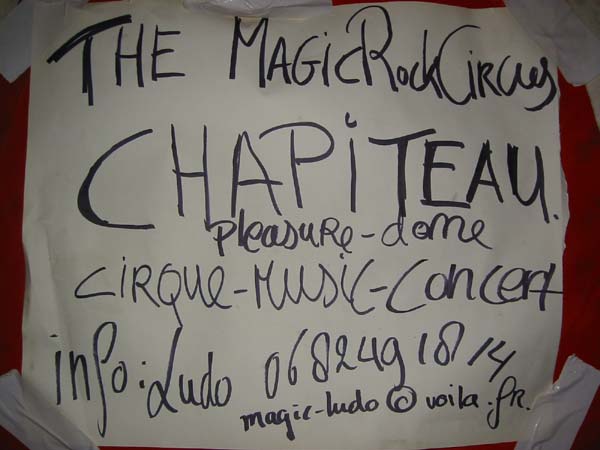 THE MAGICRockCircus
CHAPiTEAU.
pleasure-dome
CIRQUE-MUSiC-Concert
info: Ludo 0682491814
magic-ludo@voila.fr.